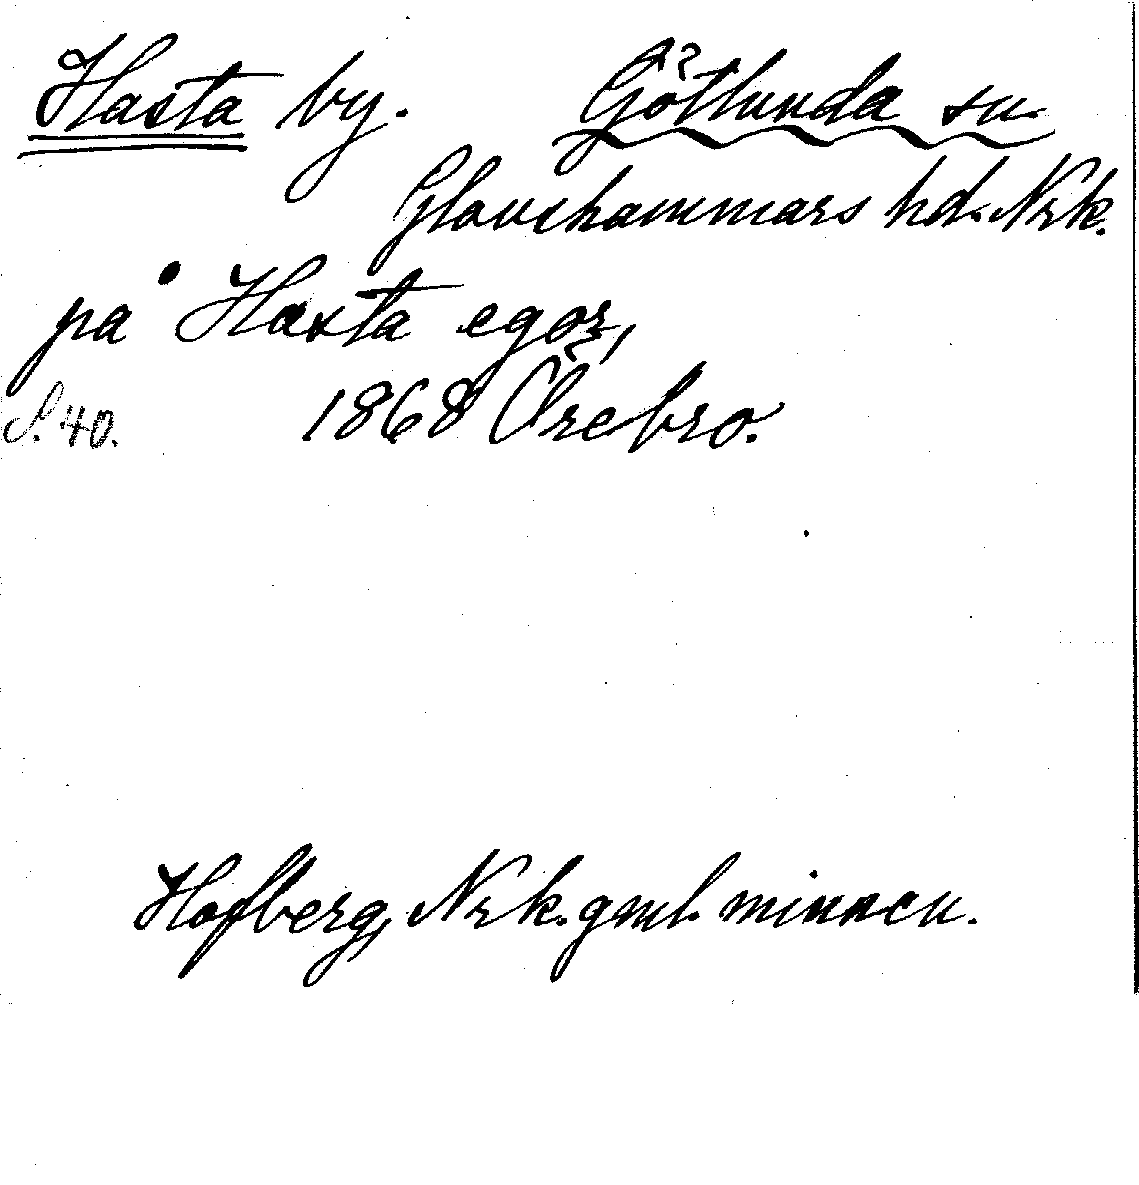 Hasta by. Götlunda sn.
Glanshammars hd. Nrk.
på Haxta egor,
S. 40. 1868 Örebro.
Hofberg, Nrk. gml. minnen.